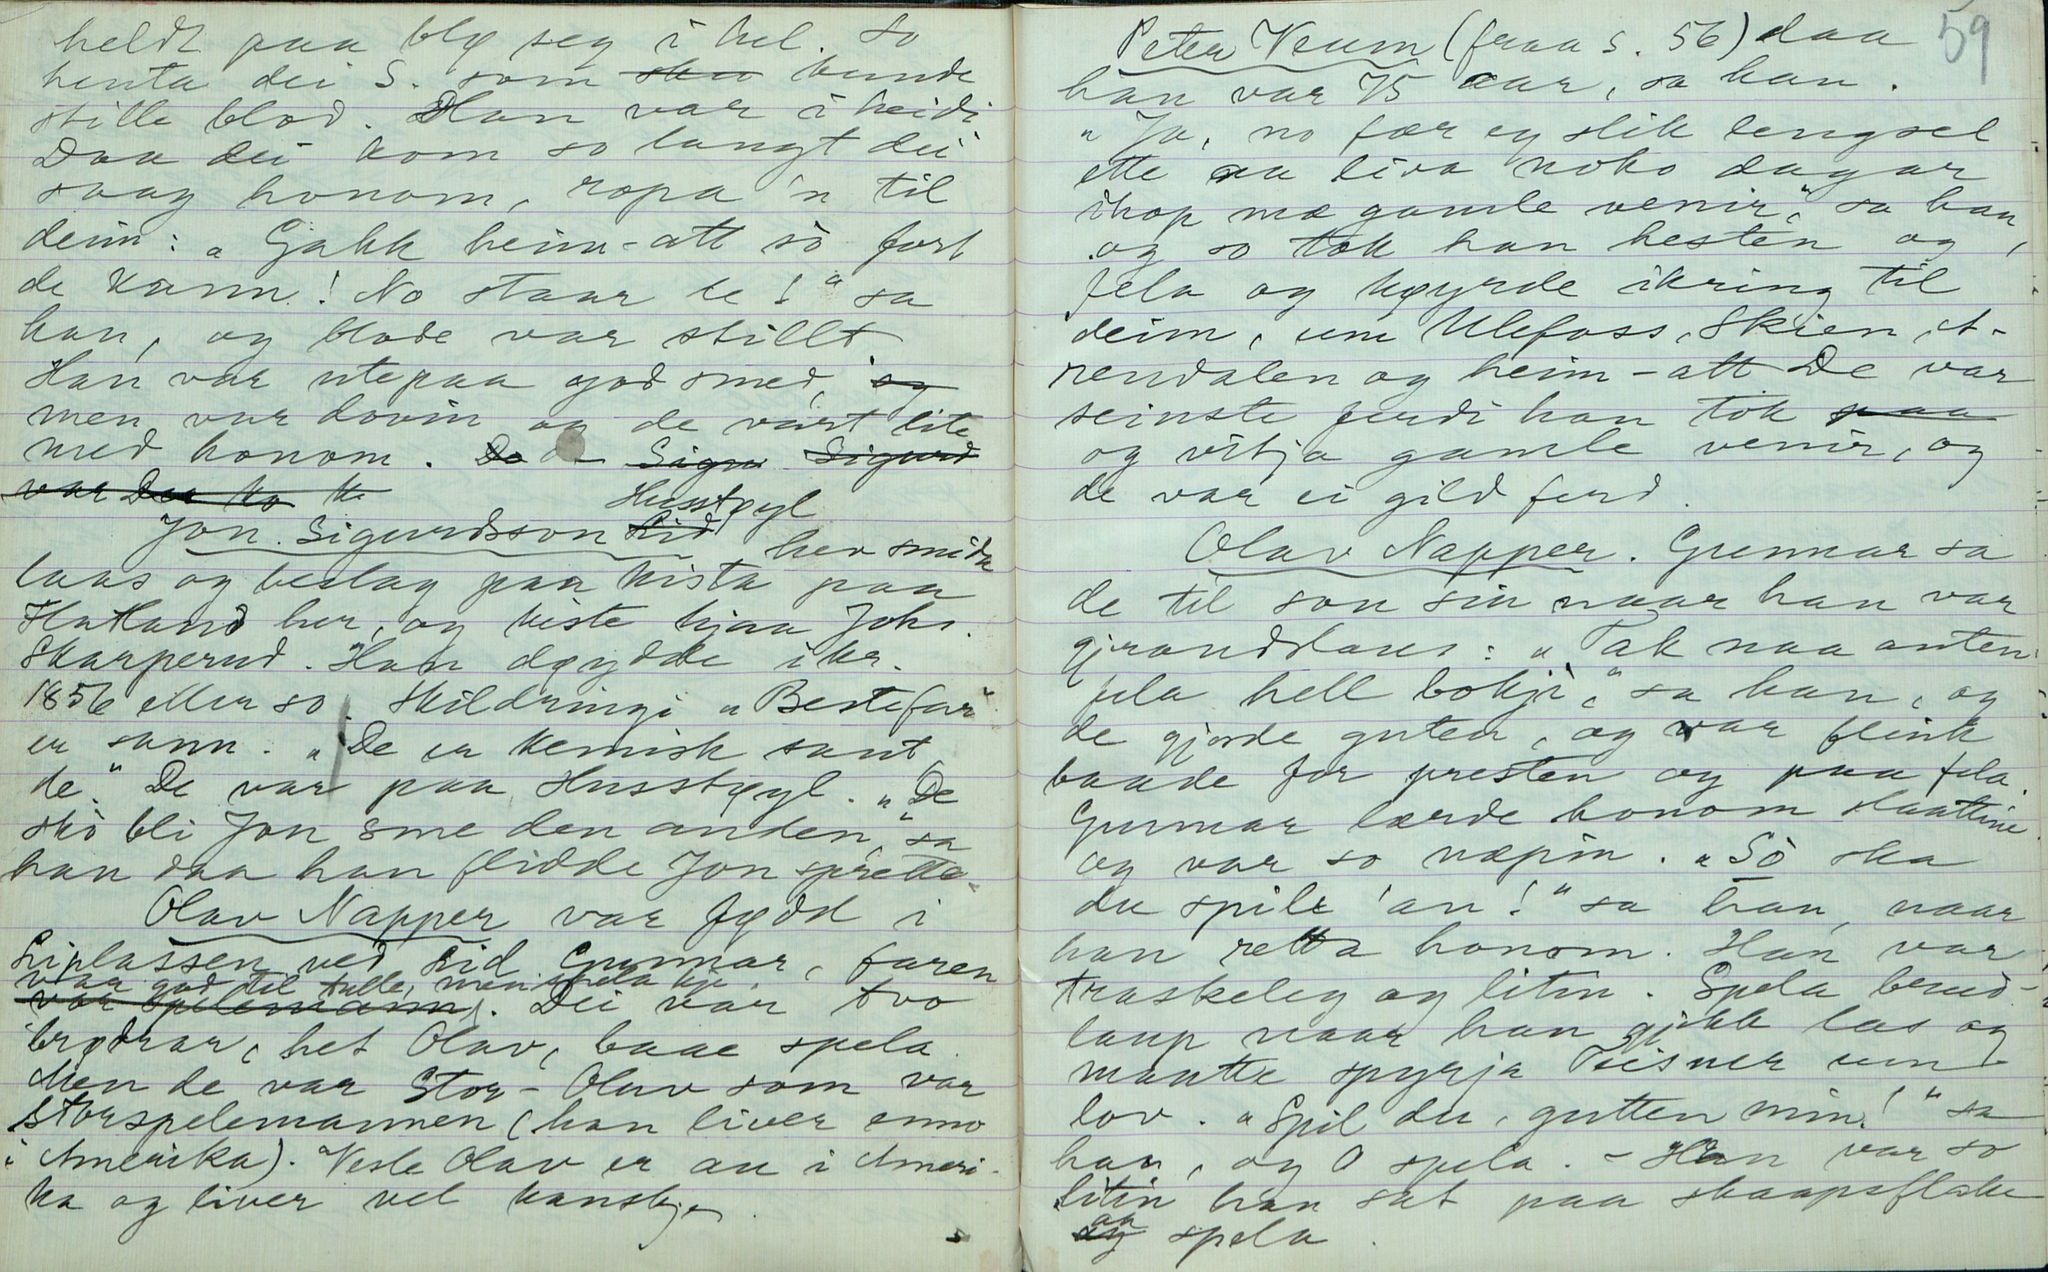 heldt paa blø seg i hel. So
henta dei S. som sku kunde
stille blod. Han var i heidi
Daa dei kom so langt dei
saag honom, ropa 'n til
deim: „Gakk heim-att sò fort
de kann! No staar de!" sa
han, og blode var stillt
Han var utepaa god smed, og
men var dovin og de vart lite
med honom. Sigurd
var
Husstøyl
Jon Sigurdsson Lid hev smida
laas og beslag paa kista paa
Hatland her, og kiste hjaa Johs.
Skarperud. Han døydde ikr.
1856 eller so. Skildringi „Bestefar"
er sann. „De er kemisk sant
de." De var paa Husstøyl. „De
skò bli Jon Sme den anden," sa
han daa han flidde Jon sprette
Olav Napper var fødd i
Liplassen ved Lid Gunnar, faren
var god til tulle, men spela kje
var spelemann. Dei var two
brødrar, het Olav, baae spela.
Men de var Stor-Olav som var
storspelemannen (han liver enno
i Amerika). Vesle Olav er au i Ameri-
ka og liver vel kanskje.
59
Peter Veum (fraa s. 56) daa
han var 75 aar, sa han.
„Ja, no fær eg slik lengsel
ette aa liva noko dagar
ihop mæ gamle venir," sa han,
og so tok han hesten og
fela og køyrde ikring til
deim, um Ulefoss, Skien, A-
rendalen og heim-att De var
seinste ferdi han tok paa
og vitja gamle venir, og
de var ei gild ferd.
Olav Napper. Gunnar sa
de til son sin naar han var
gjrandslaus: „Tak naa anten
fela hell bokji," sa han, og
de gjorde guten, og var flink
baade for presten og paa fela.
Gunnar lærde honom slaattine
og var so næpin. „Sò ska
du spile 'an!" sa han, naar
han retta honom. Han var
traskeleg og litin. Spela brud-
laup naar han gjekk las og
maatte spyrja Teisner um
lov. „Spil du, gutten min!" sa
han, og O spela. – Han var so
litin han sat paa skaapsflake
og aa spela.